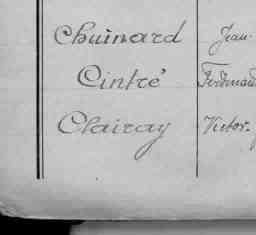 Chuinard Jean
Cintré Ferdinand
Clairay Victor